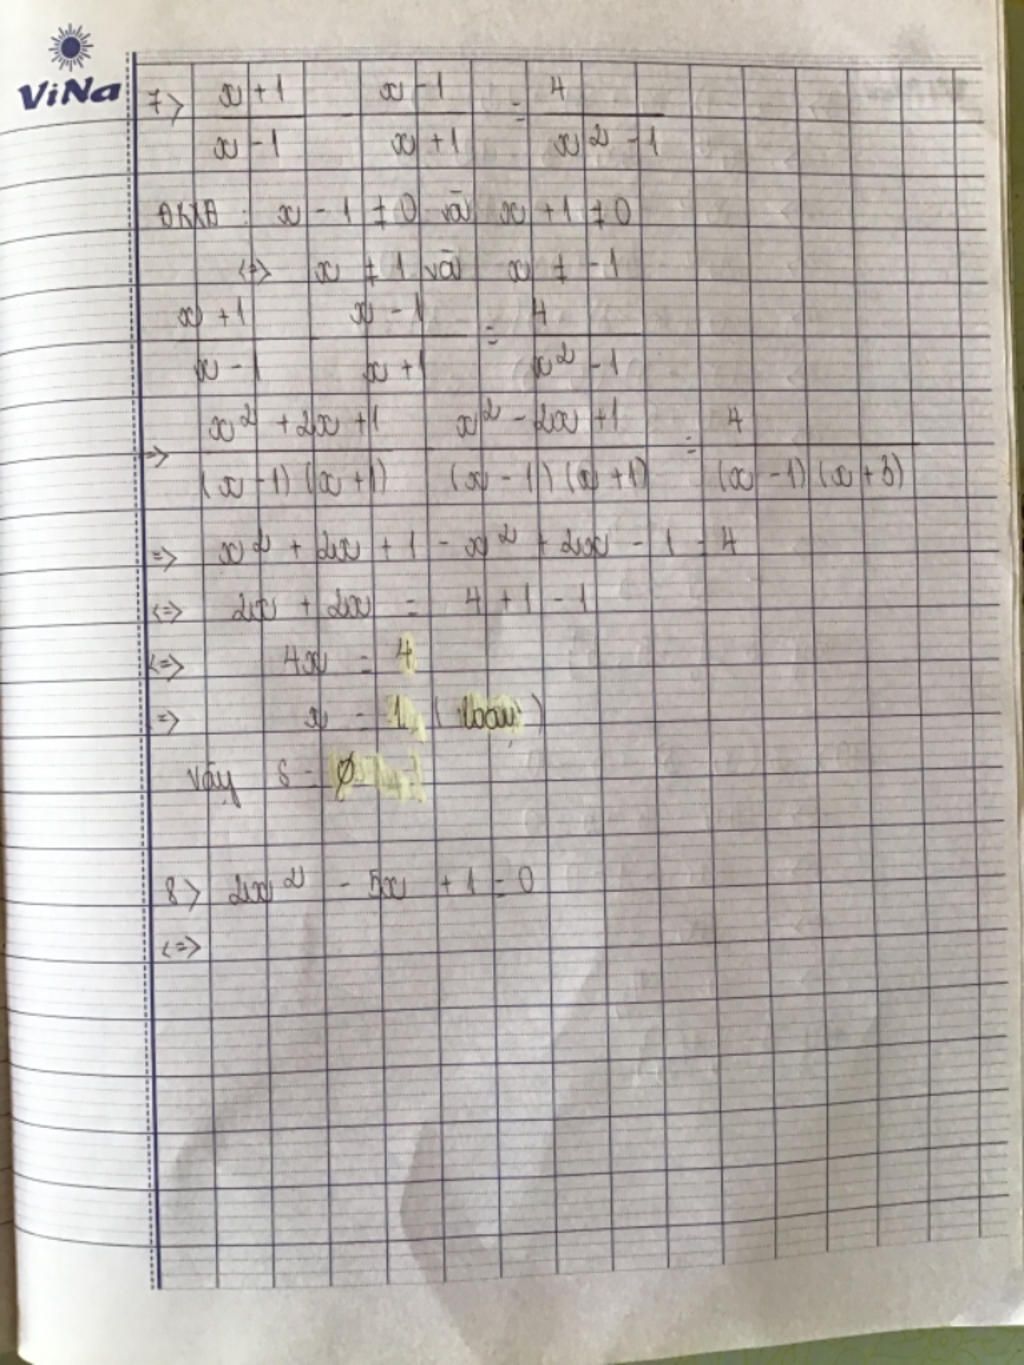 ViNa
7> x+1/x-1 - x-1/x+1 = 4/x²-1
ĐKXĐ: x - 1 ≠ 0 và x + 1 ≠ 0
<=> x ≠ 1 và x ≠ -1
x+1/x-1 - x-1/x+1 = 4/x²-1
=> x²+2x+1/(x-1)(x+1) - x²-2x+1/(x-1)(x+1) = 4/(x-1)(x+3)
=> x² + 2x + 1 - x² + 2x - 1 = 4
<=> 2x + 2x = 4 + 1 - 1
<=> 4x = 4
=> x = 1 (loại)
Vậy S = Ø
8> 2x² - 5x + 1 = 0
<=>